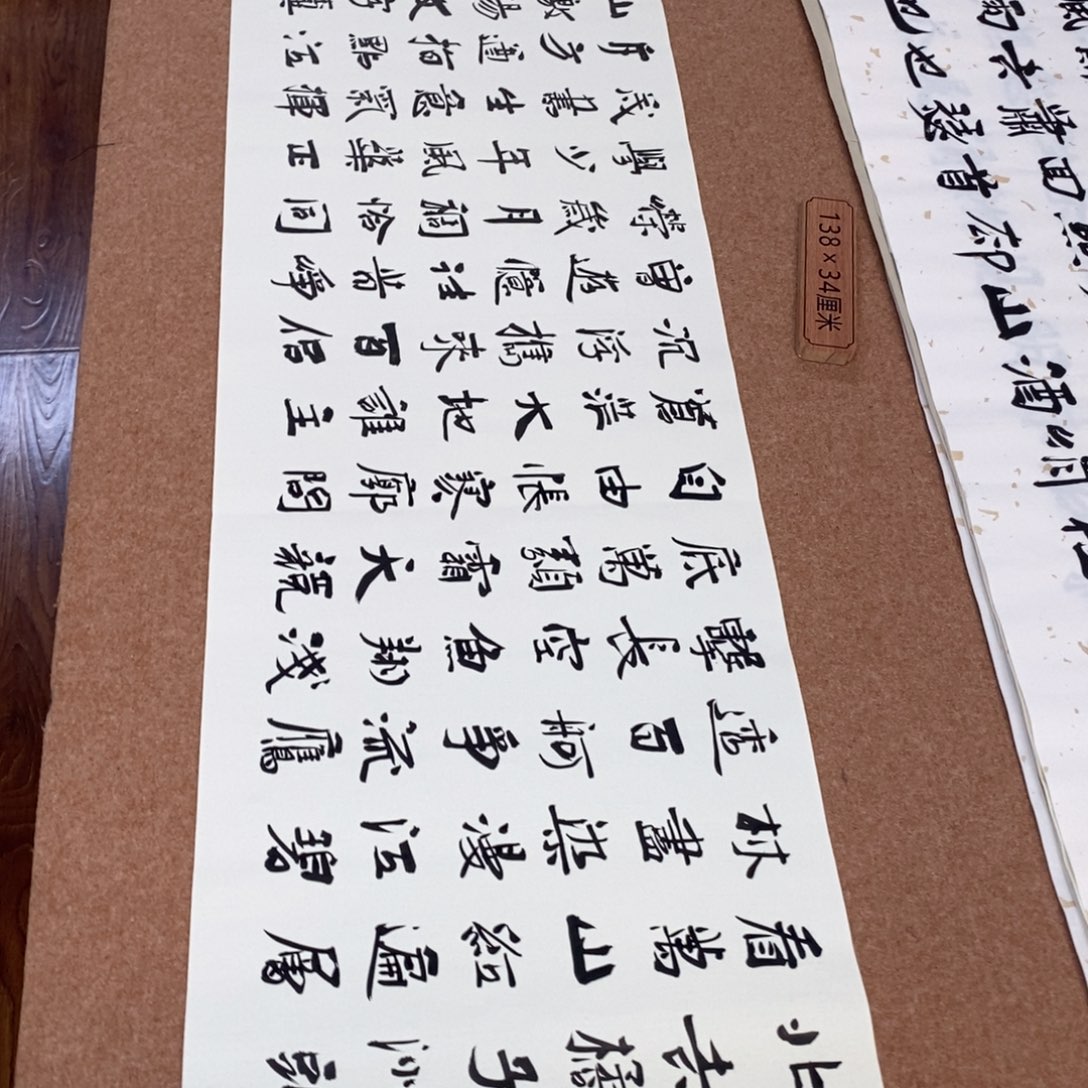 北去橘子洲頭
看萬山紅遍層
林盡染漫江碧
透百舸爭流鷹
擊長空魚翔淺
底萬類霜天競
自由悵寥廓問
蒼茫大地誰主
沉浮攜來百侶
曾遊憶往昔崢
嶸歲月稠恰同
學少年風華正
茂書生意氣揮
斥方遒指點江
山激揚文字
138×34厘米
酒
山
照卻
回首
蕭瑟
去也
雨